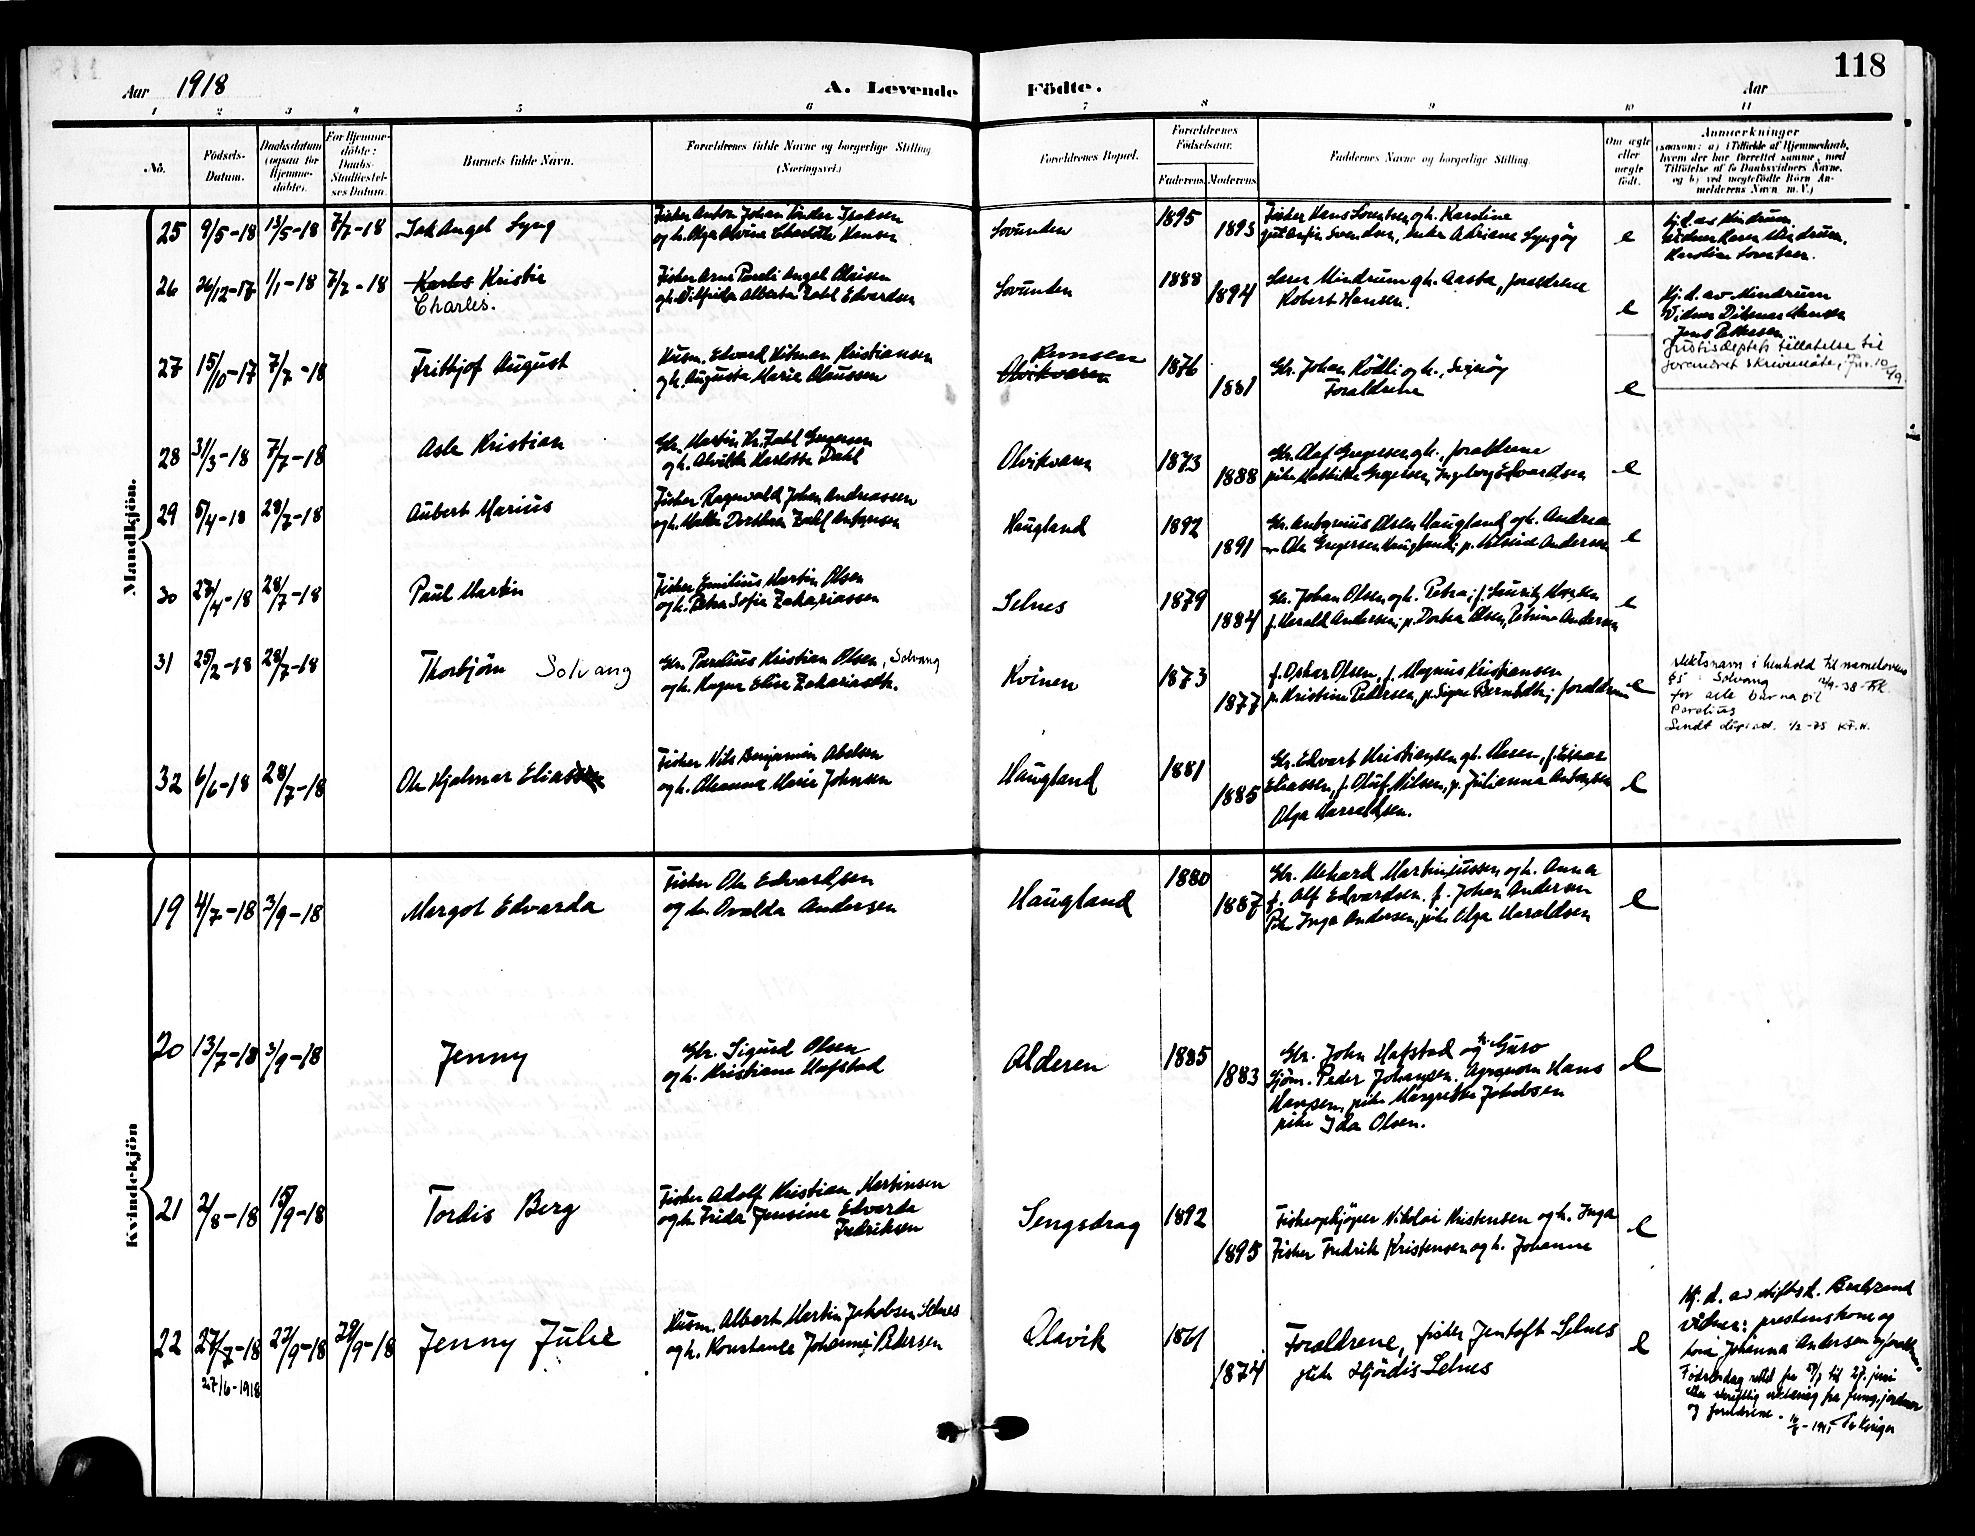 118
Aar 1918
A. Levende Födte.
Aar
1 2 3 4 5 6 7 8 9 10 11
No.
Födsels-Datum.
Daabsdatum (ogsaa for Hjemme-döbte).
For Hjemme-döbte: Daabs-Stadfæstel-ses Datum.
Barnets fulde Navn.
Forældrenes fulde Navne og borgerlige Stilling (Næringsvei.)
Forældrenes Bopæl.
Forældrenes Fødselsaar.
Faderens. Moderens.
Faddernes Navne og borgerlige Stilling.
Om ægte eller uægte födt.
Anmærkninger
(saasom: a) i Tilfælde af Hjemmedaab, hvem der har forrettet samme, med Tilföielse af to Daabsvidners Navne, og b) ved uægtefödte Börn An-melderens Navn m. V.)
Mandkjön.
25 9/5-18 13/5-18 7/7-18 Isak Angel Lyng
Fisker Anton Johan Tönder Isaksen
og h. Olga Alvine Charlotte Hansen
Lovunden 1895 1893
Fisker Hans Lorentsen og h. Karoline
e
Hj.d. av Mindrum
Vidner Karen Mindrum,
Karoline Lorentsen.
26 26/12-17 1/1-18 7/7-18 Karles Kristie
Charles.
Fisker Arne Pareli Angel Olaisen
og h. Vilfrida Alberta Zahl Edvardsen
Lovunden 1888 1894
Laser Mindrum og h. Aasta, forældrene
Robert Hansen.
e
Hj.d. av Mindrum
Vidner Ditmar Hansen
Jens Pettersen
Justisdepts tillatelse til
forandret skrivemåte, Jnr. 10/49.
27 15/10-17 7/7-18 Fritjof August
Husm. Edvard Hitman Kristiansen
og h. Augusta Marie Olaussen
Olvikvaren 1876 1881
Gbr. Johan Rödli og h.,
Forældrene
e
28 31/3-18 7/7-18 Asle Kristian
Gbr. Martin Kr. Zahl Gregersen
og h. Alvilde Karlotte Dahl
Olvikvaren 1873 1888
Gbr. Olaf Gregersen og h., forældrene
pike Mathilde Gregersen, Ingeborg Edvardsen
e
29 5/4-18 28/7-18 Aubert Marius
Fisker Ragnvald Johan Andreassen
og h. Malla Dorthea Zahl Antonsen
Haugland 1892 1891
Gbr. Antonius Olsen Haugland og h. Andrea
Ole Gregersen Haugland; p. Andersen
e
30 27/4-18 28/7-18 Paul Martin
Fisker Emilius Martin Olsen
og h. Petra Sofie Zakariassen
Selnes 1879 1884
Gbr. Johan Olsen og h. Petra; f. Lauritz
f. Harald Andersen; p. Dortea Olsen, Petrine Andersen
e
31 25/2-18 28/7-18 Thorbjörn Solvang
Gbr. Parelius Kristian Olsen, Solvang
og h. Ragna Elise Zakariasdtr.
Kvinen 1873 1877
f. Oskar Olsen, f. Magnus Kristiansen
p. Kristine Pedersen, p. Signe Berntsdtr; forældrene
e
slektsnavn i henhold til navneloven
§5 : Solvang
for alle barna til
Parelius
Sendt dupreg. 4/2-75 KF.H.
32 6/6-18 28/7-18 Ole Hjalmar Eliassen
Fisker Nils Benjamin Abelsen
og h. Oleanna Marie Johnsen
Haugland 1881 1885
Gbr. Edvart Kristiansen og h. Maren, f. Einar
Eliassen, f. Oluf Nilsen, p. Julianna Antonsen
Olga Harraldsen.
e
Kvindekjön
19 4/7-18 3/9-18 Margot Edvarda
Fisker Ole Edvardsen
og h. Ovalda Andersen
Haugland 1880 1887
Gbr. Mekard Martinjussen og h. Anna
f. Alf Edvardsen. f. Johan Andersen
Pike Inga Andersen, pike Olga Haraldsen
e
20 13/7-18 3/9-18 Jenny
Gbr. Sigurd Olsen
og h. Kristiane Hafstad
Alderen 1885 1883
Gbr. John Hafstad og h. Guro
Sjöm. Peder Johansen. Agronom Hans
Hansen, pike Margrethe Jakobsen
pike Ida Olsen.
e
21 2/8-18 15/9-18 Tordis Berg
Fisker Adolf Kristian Martinsen
og h. Frida Jensine Edvarda
Fredriksen
Sengsdrag 1892 1895
Fiskeopkjöper Nikolai Kristensen og h. Inga
Fisker Fredrik Kristensen og h. Johanne
e
22 27/7-18 22/9-18 29/9-18 Jenny Julie
27/6-1918
Husm. Albert Martin Jakobsen Selnes
og h. Konstanse Johanne Pedersen
Olavik 1861 1874
Forældrene, fisker Jentoft Selnes
pike Hjördis Selnes
e
Hj. d. av stiftsk. Brækstad
vidner: prestenskone og
Johanna Andersen og
Födselsdag rettet fra 27/7 til 27. juni
etter skriftlig erklæring fra jordmor
og foreldrene.